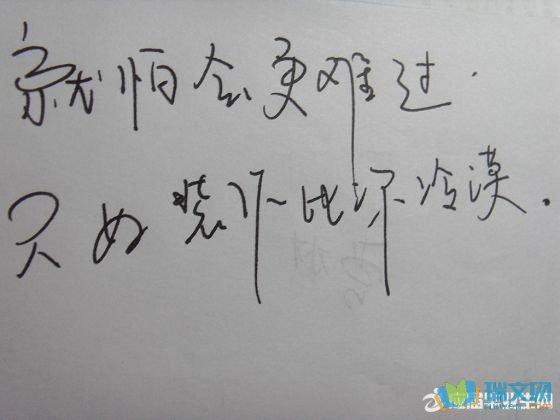 就怕会更难过.
只好装作比你冷漠.
瑞文网